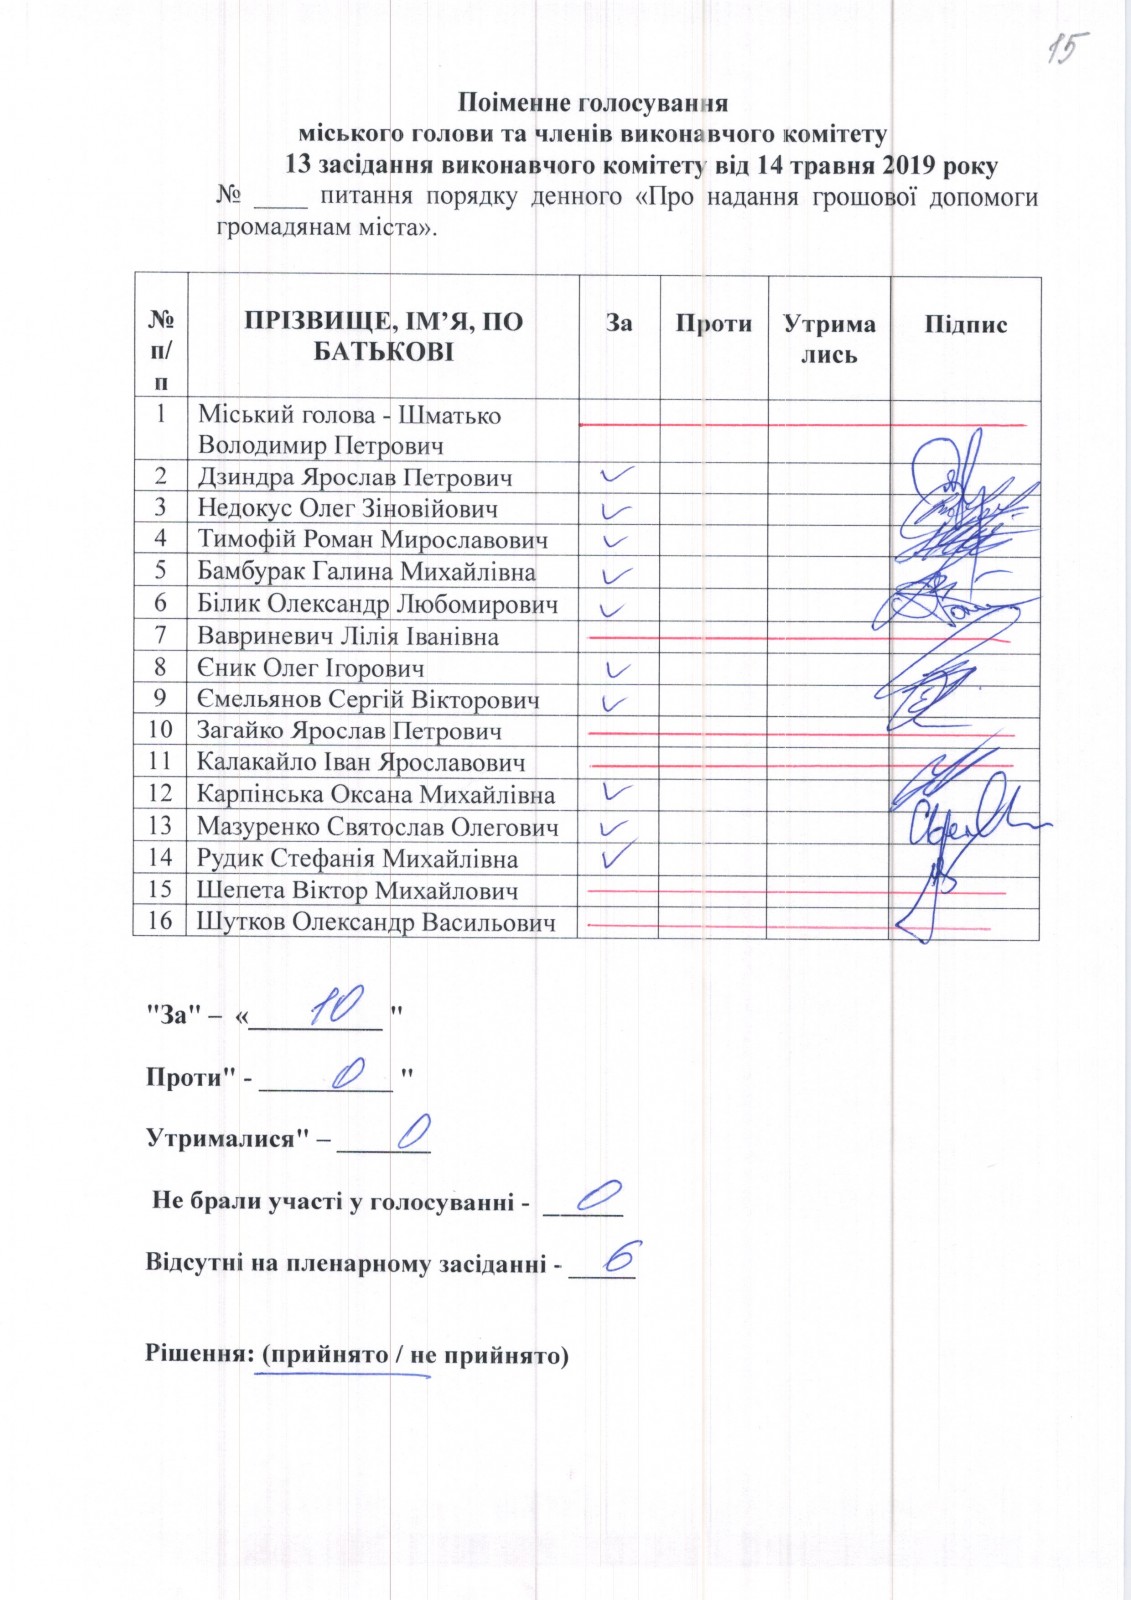 15
Поіменне голосування
міського голови та членів виконавчого комітету
13 засідання виконавчого комітету від 14 травня 2019 року
№ ____ питання порядку денного «Про надання грошової допомоги
громадянам міста».
№ п/п ПРІЗВИЩЕ, ІМ’Я, ПО БАТЬКОВІ За Проти Утрима лись Підпис
1 Міський голова - Шматько
Володимир Петрович
2 Дзиндра Ярослав Петрович ✓
3 Недокус Олег Зіновійович ✓
4 Тимофій Роман Мирославович ✓
5 Бамбурак Галина Михайлівна ✓
6 Білик Олександр Любомирович ✓
7 Вавриневич Лілія Іванівна
8 Єник Олег Ігорович ✓
9 Ємельянов Сергій Вікторович ✓
10 Загайко Ярослав Петрович
11 Калакайло Іван Ярославович
12 Карпінська Оксана Михайлівна ✓
13 Мазуренко Святослав Олегович ✓
14 Рудик Стефанія Михайлівна ✓
15 Шепета Віктор Михайлович
16 Шутков Олександр Васильович
"За" – « 10 "
Проти" - 0 "
Утрималися" – 0
Не брали участі у голосуванні - 0
Відсутні на пленарному засіданні - 6
Рішення: (прийнято / не прийнято)